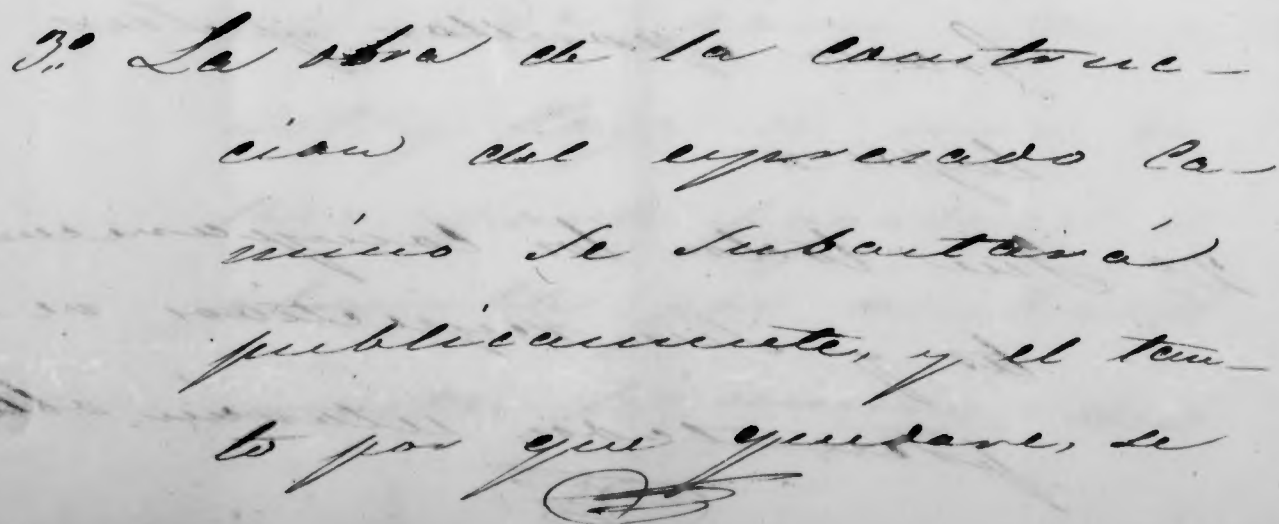 3.º La obra de la construc-
cion del espresado ca-
mino se subastará
publicamente, y el tan-
to por que quedare, se